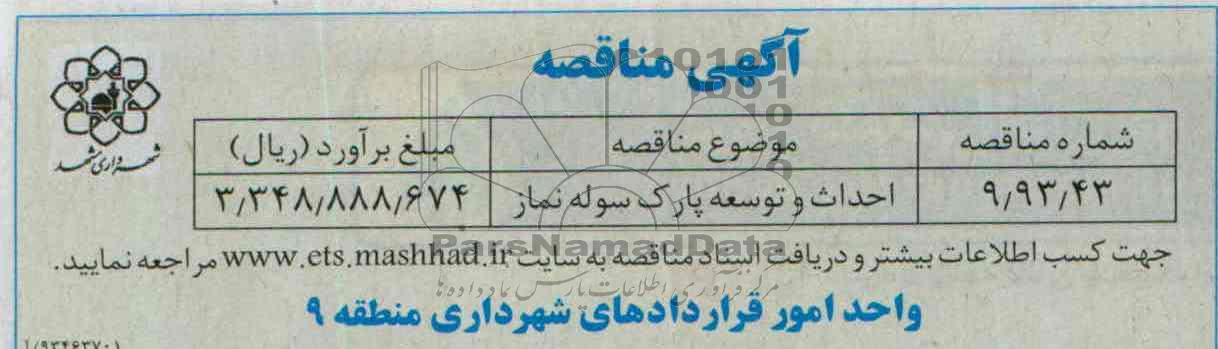 آگهی مناقصه
شهرداری مشهد
شماره مناقصه موضوع مناقصه مبلغ برآورد (ریال)
۹٫۹۳٫۴۳ احداث و توسعه پارک سوله نماز ۳٫۳۴۸٫۸۸۸٫۶۷۴
جهت کسب اطلاعات بیشتر و دریافت اسناد مناقصه به سایت www.ets.mashhad.ir مراجعه نمایید.
ParsNamadData
واحد امور قراردادهای شهرداری منطقه ۹